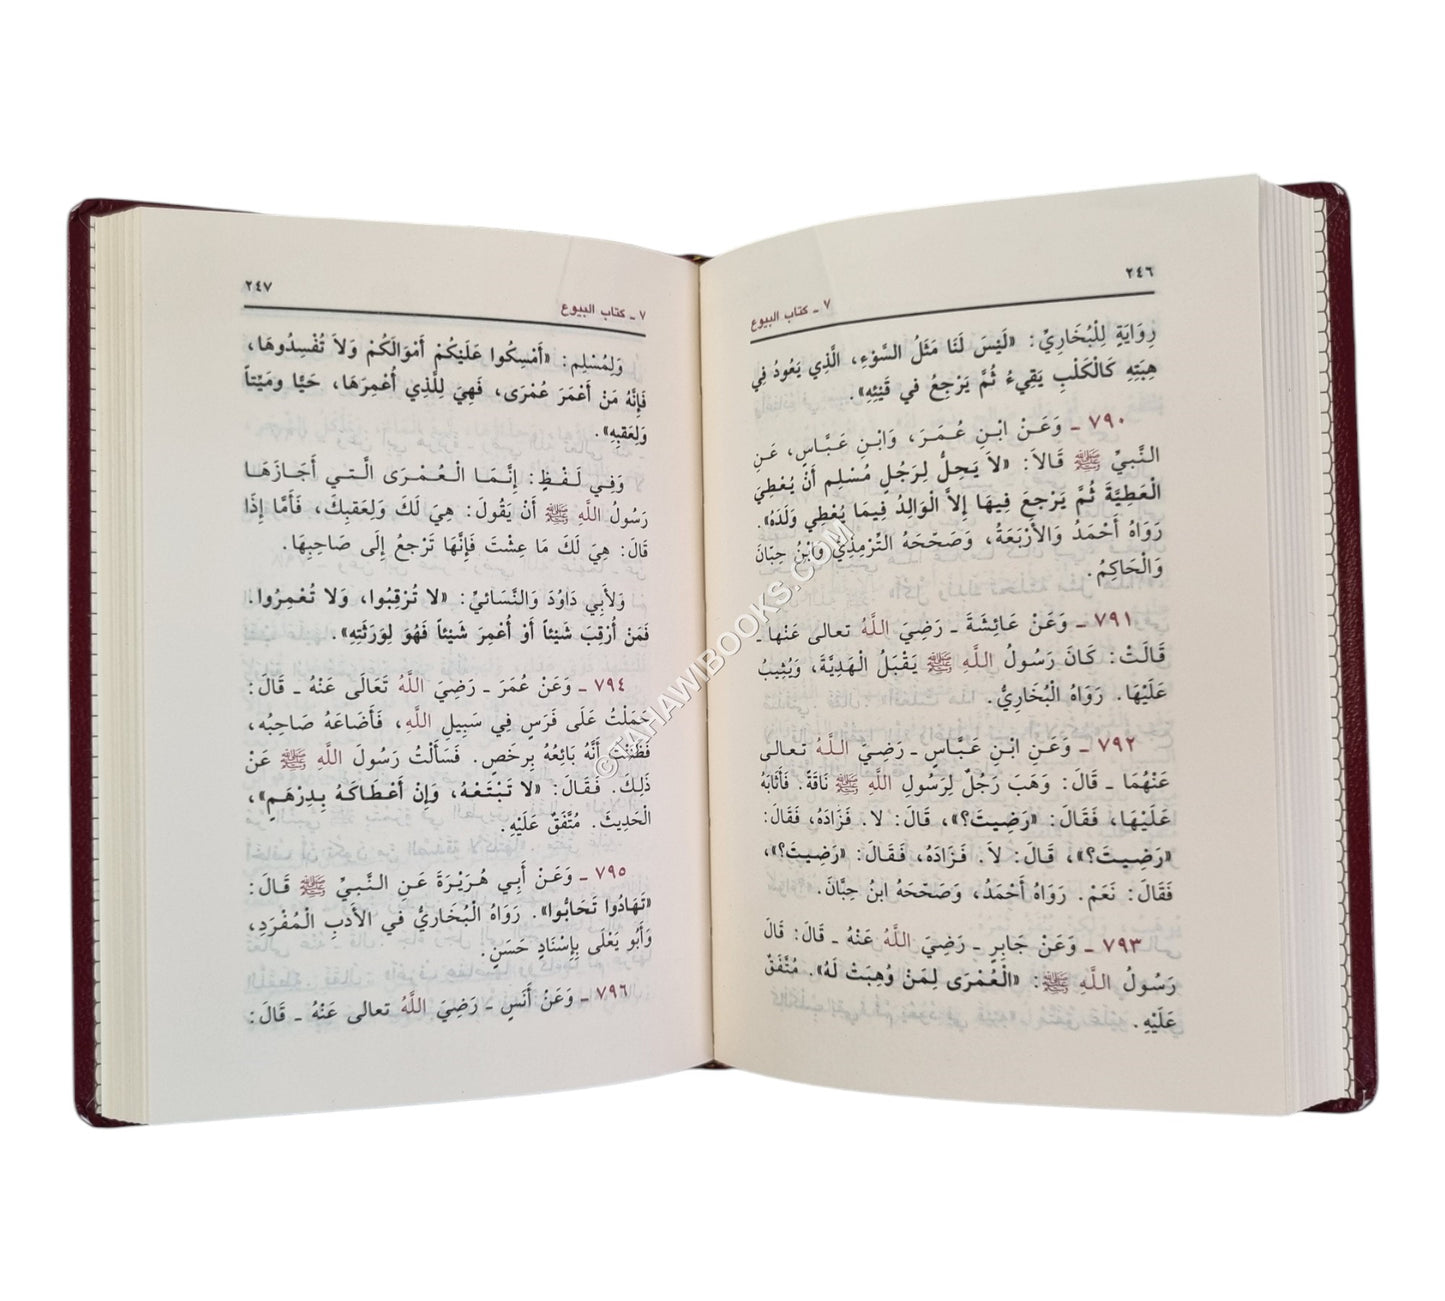 ٢٤٦
٧ ـ كتاب البيوع
رِوَايَةٍ لِلْبُخَارِيِّ: «لَيْسَ لَنَا مَثَلُ السَّوْءِ، الَّذِي يَعُودُ فِي
هِبَتِهِ كَالْكَلْبِ يَقِيءُ ثُمَّ يَرْجِعُ في قَيْئِهِ».
٧٩٠ ـ وَعَنْ ابْنِ عُمَرَ، وَابْنِ عَبَّاسٍ، عَنِ
النَّبيِّ ﷺ قَالاَ: «لاَ يَحِلُّ لِرَجُلٍ مُسْلِمٍ أَنْ يُعْطِيَ
الْعَطِيَّةَ ثُمَّ يَرْجِعَ فِيهَا إِلاَّ الْوَالِدُ فِيمَا يُعْطِي وَلَدَهُ».
رَوَاهُ أَحْمَدُ وَالأَرْبَعَةُ، وَصَحَّحَهُ التِّرْمِذِيُّ وَابْنُ حِبَّانَ
وَالْحَاكِمُ.
٧٩١ ـ وَعَنْ عَائِشَةَ ـ رَضِيَ اللَّهُ تعالى عَنْها ـ
قَالَتْ: كَانَ رَسُولُ اللَّهِ ﷺ يَقْبَلُ الْهَدِيَّةَ، وَيُثِيبُ
عَلَيْهَا. رَوَاهُ الْبُخَارِيُّ.
٧٩٢ ـ وَعَنِ ابْنِ عَبَّاسٍ ـ رَضِيَ اللَّهُ تعالى
عَنْهُمَا ـ قَالَ: وَهَبَ رَجُلٌ لِرَسُولِ اللَّهِ ﷺ نَاقَةً. فَأَثَابَهُ
عَلَيْهَا، فَقَالَ: «رَضِيتَ؟»، قَالَ: لا. فَزَادَهُ، فَقَالَ:
«رَضِيتَ؟»، قَالَ: لاَ. فَزَادَهُ، فَقَالَ: «رَضِيتَ؟»،
فَقَالَ: نَعَمْ. رَوَاهُ أَحْمَدُ، وَصَحَّحَهُ ابنُ حِبَّانَ.
٧٩٣ ـ وَعَنْ جَابِرٍ ـ رَضِيَ اللَّهُ عَنْهُ ـ قَالَ: قَالَ
رَسُولُ اللَّهِ ﷺ: «الْعُمْرَى لِمَنْ وُهِبَتْ لَهُ». مُتَّفَقٌ
عَلَيْهِ.
٢٤٧
٧ ـ كتاب البيوع
وَلِمُسْلِم: «أَمْسِكُوا عَلَيْكُمْ أَمْوَالَكُمْ وَلاَ تُفْسِدُوهَا،
فَإِنَّهُ مَنْ أَعْمَرَ عُمْرَى، فَهِيَ لِلَّذِي أُعْمِرَهَا، حَيًّا وَمَيْتاً
وَلِعَقبِهِ».
وَفِي لَفْظٍ: إِنَّمَا الْعُمْرَى الَّتي أَجَازَهَا
رَسُولُ اللَّهِ ﷺ أَنْ يَقُولَ: هِيَ لَكَ وَلِعَقبِكَ، فَأَمَّا إِذَا
قَالَ: هِيَ لَكَ مَا عِشْتَ فَإِنَّهَا تَرْجعُ إلَى صَاحِبِهَا.
وَلأَبي دَاوُدَ وَالنَّسَائيِّ: «لا تُرْقِبُوا، وَلا تُعْمِرُوا.
فَمَنْ أُرْقِبَ شَيْئاً أَوْ أُعْمِرَ شَيْئاً فَهُوَ لِوَرَثَتِهِ».
٧٩٤ ـ وَعَنْ عُمَرَ ـ رَضِيَ اللَّهُ تَعَالَى عَنْهُ ـ قَالَ:
حَمَلْتُ عَلَى فَرَسٍ فِي سَبِيلِ اللَّهِ، فَأَضَاعَهُ صَاحِبُه،
فَظَنَنْتُ أَنَّهُ بَائِعُهُ بِرخَصٍ. فَسَأَلْتُ رَسُولَ اللَّهِ ﷺ عَنْ
ذَلِكَ. فَقَالَ: «لا تَبْتَعْهُ، وَإِنْ أَعْطَاكَهُ بِدِرْهَمٍ»،
الْحَدِيثَ. مُتَّفَقٌ عَلَيْهِ.
٧٩٥ ـ وَعَنْ أَبِي هُرَيْرَةَ عَنِ النَّبيِّ ﷺ قَالَ:
«تَهَادُوا تَحَابُّوا». رَوَاهُ الْبُخَارِيُّ في الأَدبِ الْمُفْرَدِ،
وَأَبُو يَعْلَى بِإِسْنَادٍ حَسَنٍ.
٧٩٦ ـ وَعَنْ أَنَسٍ ـ رَضِيَ اللَّهُ تعالى عَنْهُ ـ قَالَ:
©TAHAWIBOOKS.COM